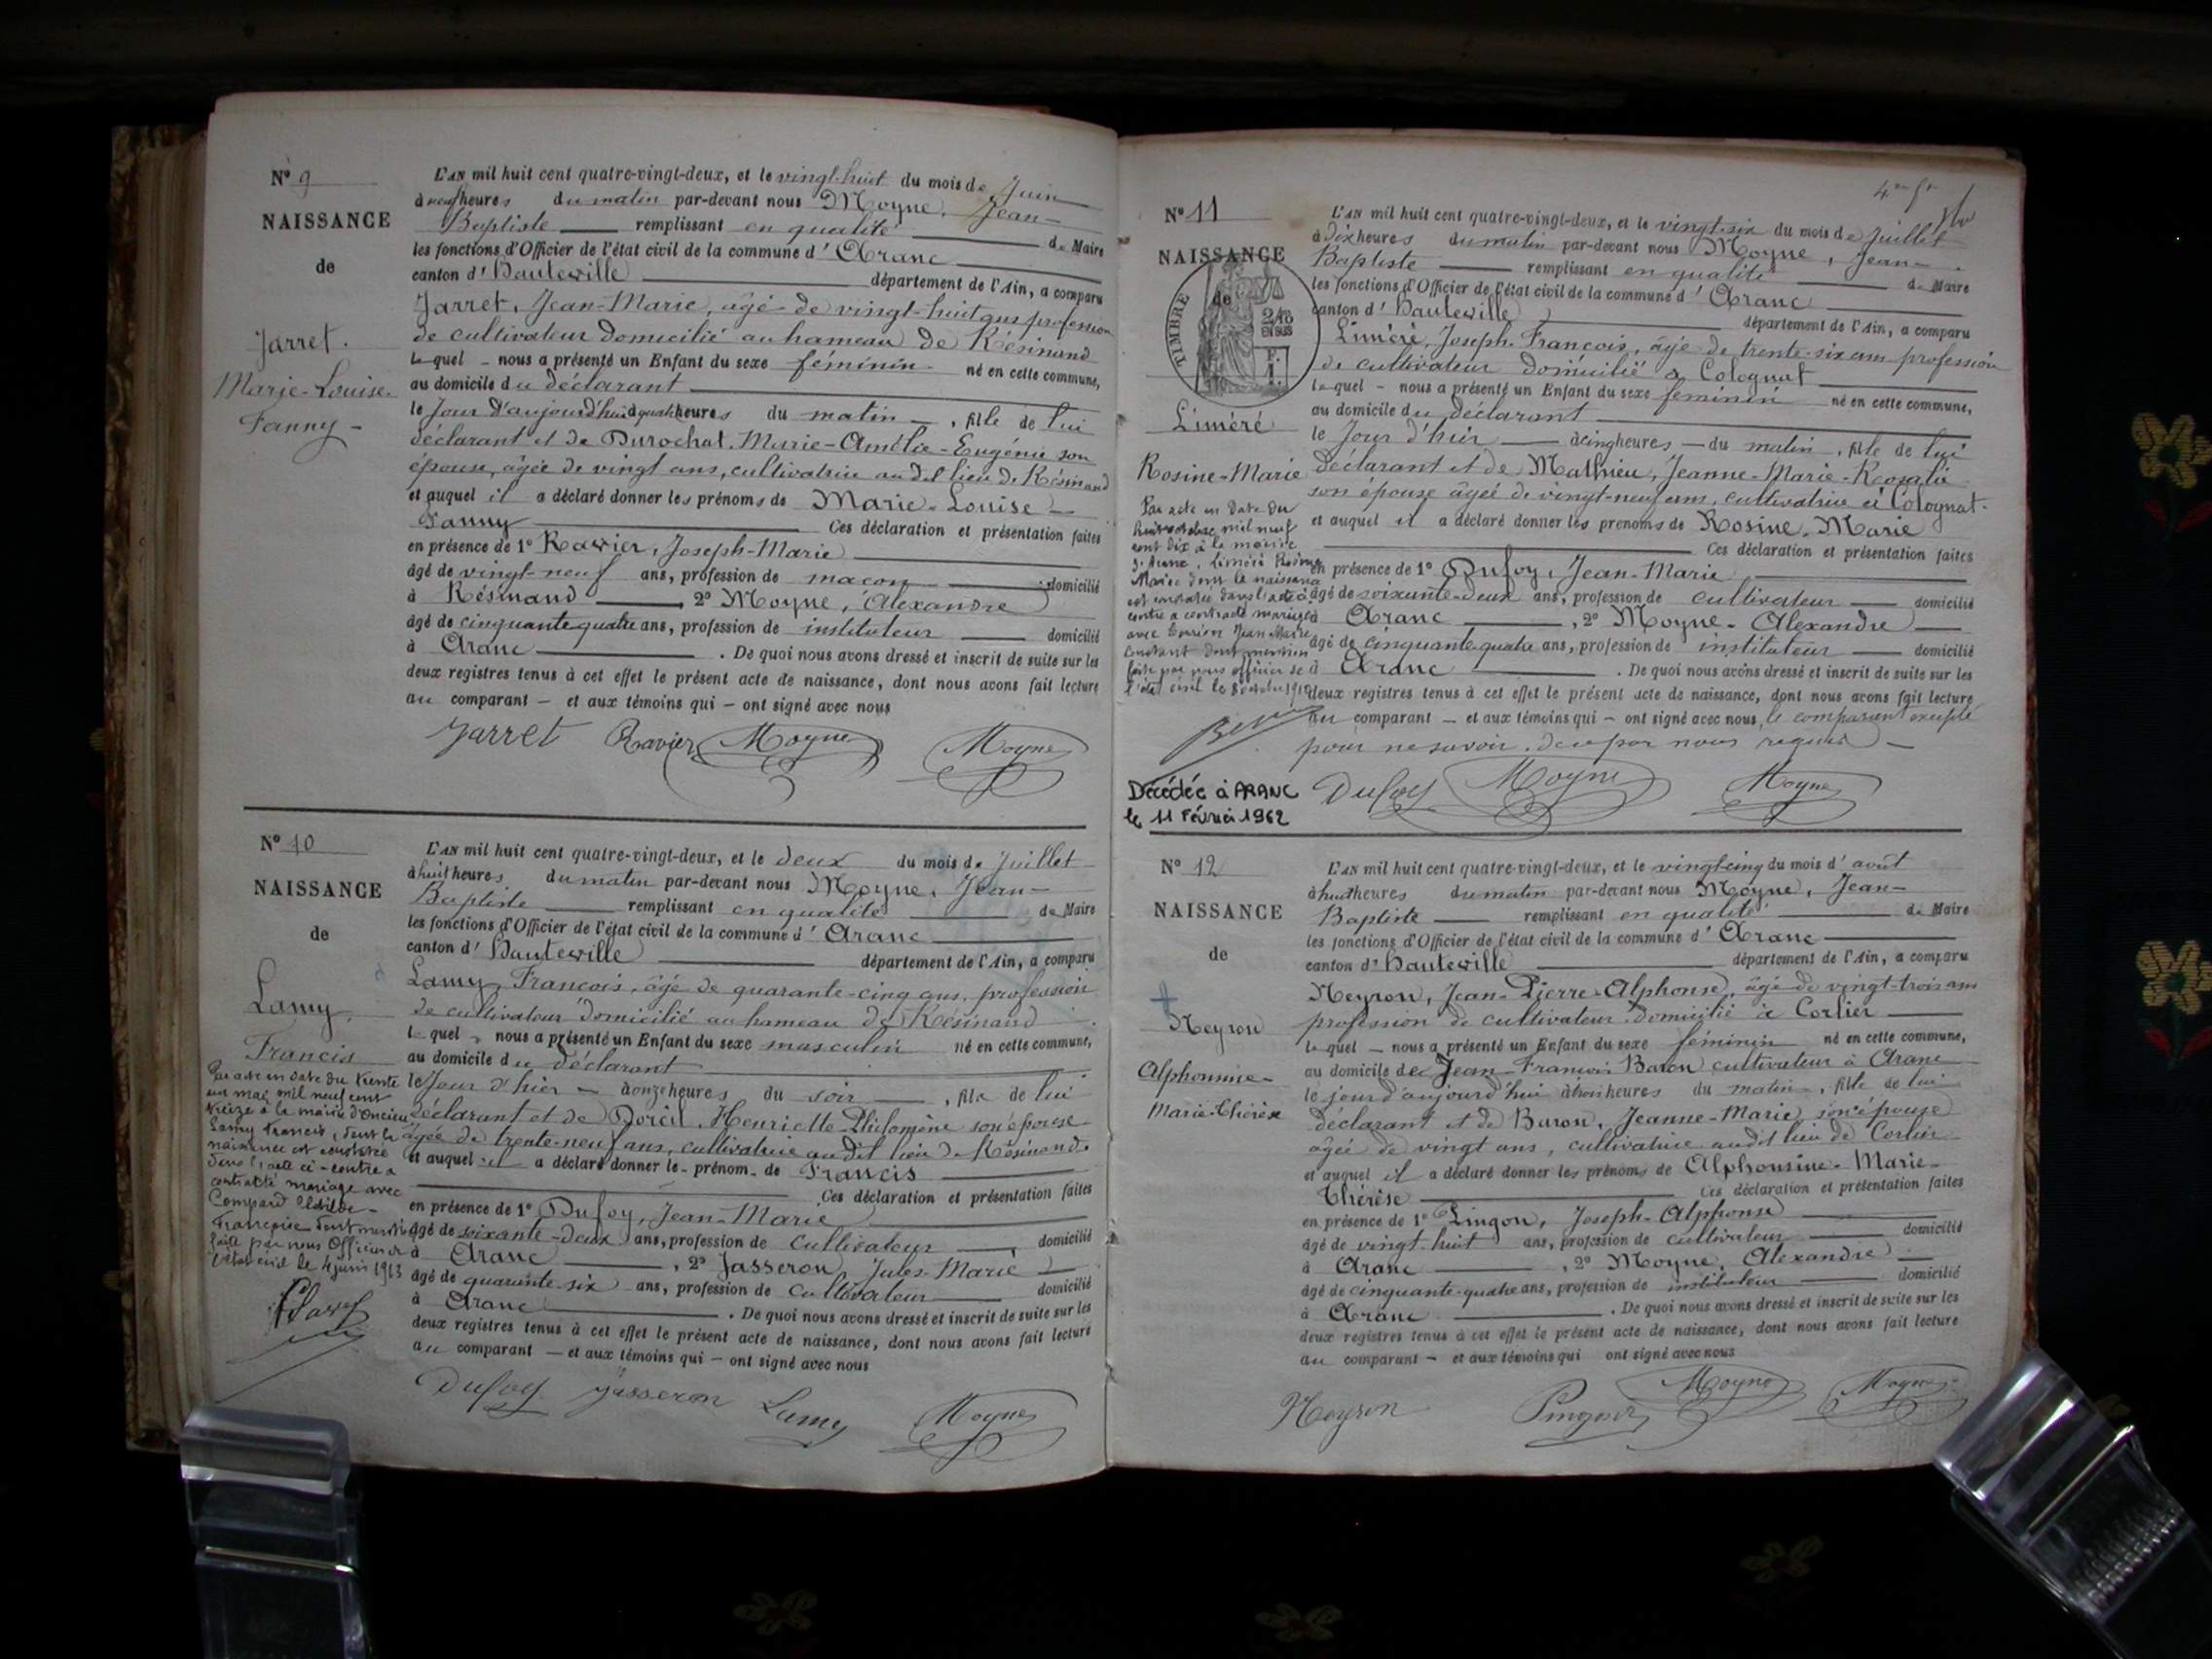 N° 9
NAISSANCE
de
Jarret.
Marie-Louise-
Fanny-
L'AN mil huit cent quatre-vingt-deux, et le vingt-huit du mois de Juin
à neuf heures du matin par-devant nous Moyne, Jean-
Baptiste remplissant en qualité de Maire
les fonctions d'Officier de l'état civil de la commune d'Aranc
canton d'Hauteville département de l'Ain, a comparu
Jarret, Jean-Marie, âgé de vingt-huit ans profession
de cultivateur domicilié au hameau de Résinand
lequel nous a présenté un Enfant du sexe féminin né en cette commune,
au domicile du déclarant
le Jour d'aujourd'hui à quatre heures du matin, fille de lui
déclarant et de Durochat, Marie-Amélie-Eugénie son
épouse, âgée de vingt ans, cultivatrice audit lieu de Résinand
et auquel il a déclaré donner les prénoms de Marie-Louise-
Fanny Ces déclaration et présentation faites
en présence de 1° Ravier, Joseph-Marie
âgé de vingt-neuf ans, profession de maçon domicilié
à Résinand, 2° Moyne, Alexandre
âgé de cinquante quatre ans, profession de instituteur domicilié
à Aranc. De quoi nous avons dressé et inscrit de suite sur les
deux registres tenus à cet effet le présent acte de naissance, dont nous avons fait lecture
au comparant et aux témoins qui ont signé avec nous
Jarret Ravier Moyne Moyne
N° 10
NAISSANCE
de
Lamy,
Francis
Par acte en date du trente
un mai mil neuf cent
treize à la mairie d'Oncieu
Lamy Francis, dont la
naissance est constatée
dans l'acte ci-contre a
contracté mariage avec
Compard Clotilde-
Françoise dont mention
faite par nous Officier de
l'état civil le 4 juin 1913
L'AN mil huit cent quatre-vingt-deux, et le deux du mois de Juillet
à huit heures du matin par-devant nous Moyne, Jean-
Baptiste remplissant en qualité de Maire
les fonctions d'Officier de l'état civil de la commune d'Aranc
canton d'Hauteville département de l'Ain, a comparu
Lamy, Francois, âgé de quarante-cinq ans, profession
de cultivateur domicilié au hameau de Résinand
lequel nous a présenté un Enfant du sexe masculin né en cette commune,
au domicile du déclarant
le Jour d'hier à onze heures du soir, fils de lui
déclarant et de Henriette-Philomène son épouse
âgée de trente-neuf ans, cultivatrice audit lieu de Résinand.
et auquel il a déclaré donner le prénom de Francis
Ces déclaration et présentation faites
en présence de 1° Dufoy, Jean-Marie
âgé de soixante-deux ans, profession de cultivateur domicilié
à Aranc, 2° Jasseron Jules-Marie
âgé de quarante-six ans, profession de cultivateur domicilié
à Aranc. De quoi nous avons dressé et inscrit de suite sur les
deux registres tenus à cet effet le présent acte de naissance, dont nous avons fait lecture
au comparant et aux témoins qui ont signé avec nous
Dufoy Jasseron Lamy Moyne
N° 11
NAISSANCE
de
TIMBRE
2/10
EN SUS
Liméré
Rosine-Marie
Par acte en date du
huit octobre mil neuf
cent dix à la mairie
d'Aranc, Liméré Rosine
Marie dont la naissance
est constatée dans l'acte ci-
contre a contracté mariage
avec Jean Marie
Constant dont mention
faite par nous officier de
l'état civil le 8 octobre 1910
Décédée à ARANC
le 11 Février 1962
L'AN mil huit cent quatre-vingt-deux, et le vingt-six du mois de Juillet
à dix heures du matin par-devant nous Moyne, Jean-
Baptiste remplissant en qualité de Maire
les fonctions d'Officier de l'état civil de la commune d'Aranc
canton d'Hauteville département de l'Ain, a comparu
Liméré, Joseph-Francois, âgé de trente-six ans profession
de cultivateur domicilié à Colognat
lequel nous a présenté un Enfant du sexe féminin né en cette commune,
au domicile du déclarant
le Jour d'hier à cinq heures du matin, fille de lui
déclarant et de Mathieu, Jeanne-Marie-Rosalie
son épouse âgée de vingt-neuf ans, cultivatrice à Colognat.
et auquel il a déclaré donner les prénoms de Rosine, Marie
Ces déclaration et présentation faites
en présence de 1° Dufoy, Jean-Marie
âgé de soixante-deux ans, profession de cultivateur domicilié
à Aranc, 2° Moyne-Alexandre
âgé de cinquante-quatre ans, profession de instituteur domicilié
à Aranc. De quoi nous avons dressé et inscrit de suite sur les
deux registres tenus à cet effet le présent acte de naissance, dont nous avons fait lecture
au comparant et aux témoins qui ont signé avec nous, le comparant excepté
pour ne savoir, de ce par nous requis
Dufoy Moyne Moyne
N° 12
NAISSANCE
de
Neyron
Alphonsine-
Marie-Thérèse
L'AN mil huit cent quatre-vingt-deux, et le vingt-cinq du mois d'août
à huit heures du matin par-devant nous Moyne, Jean-
Baptiste remplissant en qualité de Maire
les fonctions d'Officier de l'état civil de la commune d'Aranc
canton d'Hauteville département de l'Ain, a comparu
Neyron, Jean-Pierre-Alphonse, âgé de vingt-trois ans
profession de cultivateur domicilié à Corlier
lequel nous a présenté un Enfant du sexe féminin né en cette commune,
au domicile de Jean-Francois Baron cultivateur à Aranc
le jour d'aujourd'hui à trois heures du matin, fille de lui
déclarant et de Baron, Jeanne-Marie, son épouse
âgée de vingt ans, cultivatrice audit lieu de Corlier
et auquel il a déclaré donner les prénoms de Alphonsine-Marie-
Thérèse Ces déclaration et présentation faites
en présence de 1° Pingon, Joseph-Alphonse
âgé de vingt-huit ans, profession de cultivateur domicilié
à Aranc, 2° Moyne, Alexandre
âgé de cinquante-quatre ans, profession de instituteur domicilié
à Aranc. De quoi nous avons dressé et inscrit de suite sur les
deux registres tenus à cet effet le présent acte de naissance, dont nous avons fait lecture
au comparant et aux témoins qui ont signé avec nous
Neyron Pingon Moyne Moyne